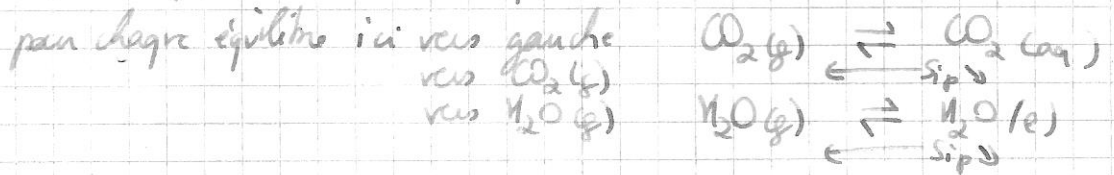 pour chaque équilibre ici vers gauche CO₂(g) ⇌ CO₂(aq)
vers CO₂(g) ← si p ↘
vers H₂O(g) H₂O(g) ⇌ H₂O(l)
← si p ↘